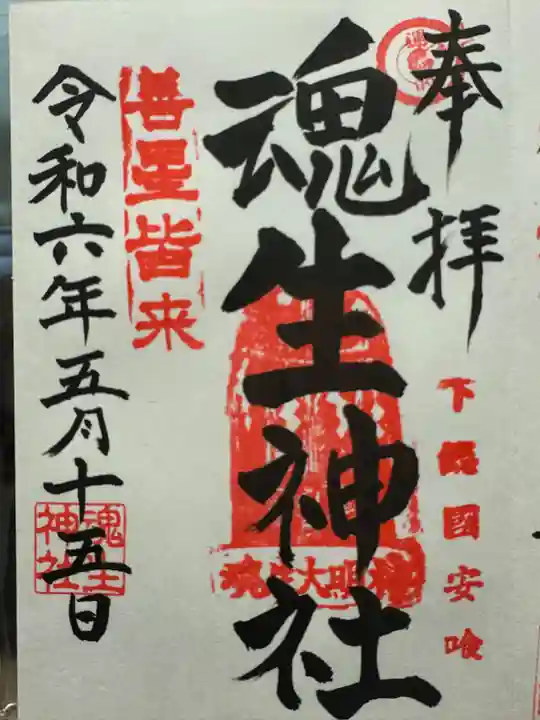 奉拝
下総國安喰
魂生神社
魂生大明神
善星皆来
令和六年五月十五日
魂生神社